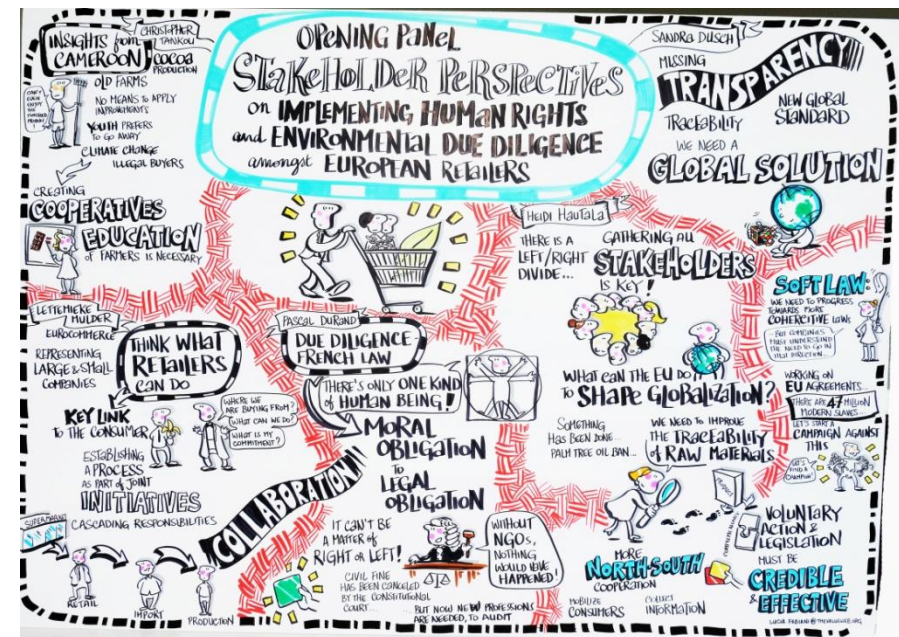 OPENING PANEL
STAKEHOLDER PERSPECTIVES
on IMPLEMENTING HUMAN RIGHTS
and ENVIRONMENTAL DUE DILIGENCE
amongst EUROPEAN RETAILERS
INSIGHTS from
CAMEROON
CHRISTOPHER
TANKOU
COCOA
PRODUCTION
OLD FARMS
NO MEANS TO APPLY
YOUTH PREFERS
TO GO AWAY
CLIMATE CHANGE
ILLEGAL BUYERS
CREATING
COOPERATIVES
EDUCATION
OF FARMERS IS NECESSARY
SANDRA DUSCH
MISSING
TRANSPARENCY
TRACEABILITY
NEW GLOBAL
STANDARD
WE NEED A
GLOBAL SOLUTION
LETTEMIEKE
MULDER
EUROCOMMERCE
REPRESENTING
LARGE & SMALL
COMPANIES
THINK WHAT
RETAILERS
CAN DO
KEY LINK
TO THE CONSUMER
WHERE WE
ARE BUYING FROM?
WHAT CAN WE DO?
WHAT IS MY
COMMITMENT?
ESTABLISHING
A PROCESS
AS PART of JOINT
INITIATIVES
CASCADING RESPONSIBILITIES
SUPERMARKET
RETAIL
IMPORT
PRODUCTION
COLLABORATION
PASCAL DURAND
DUE DILIGENCE-
FRENCH LAW
THERE'S ONLY ONE KIND
OF HUMAN BEING!
MORAL
OBLIGATION
TO
LEGAL
OBLIGATION
IT CAN'T BE
A MATTER OF
RIGHT OR LEFT!
WITHOUT
NGOs,
NOTHING
WOULD HAVE
HAPPENED!
CIVIL FINE
HAS BEEN CANCELED
BY THE CONSTITUTIONAL
COURT...
...BUT NOW NEW PROFESSIONS
ARE NEEDED, TO AUDIT
HEIDI HAUTALA
THERE IS A
LEFT/RIGHT
DIVIDE...
GATHERING ALL
STAKEHOLDERS
IS KEY!
WHAT CAN THE EU DO
TO SHAPE GLOBALIZATION?
SOMETHING
HAS BEEN DONE...
PALM TREE OIL BAN...
WE NEED TO IMPROVE
THE TRACEABILITY
OF RAW MATERIALS
MORE
NORTH-SOUTH
COOPERATION
MOBILIZE
CONSUMERS
COLLECT
INFORMATION
SOFT LAW:
WE NEED TO PROGRESS
TOWARDS MORE
COHERCITIVE LAWS
BUT COMPANIES
MUST UNDERSTAND
THE NEED TO GO IN
THAT DIRECTION...
WORKING ON
EU AGREEMENTS...
THERE ARE 47 MILLION
MODERN SLAVES...
LET'S START A
CAMPAIGN AGAINST
THIS
LET'S
FIND A
CHAMPION!
VOLUNTARY
ACTION &
LEGISLATION
MUST BE
CREDIBLE
& EFFECTIVE